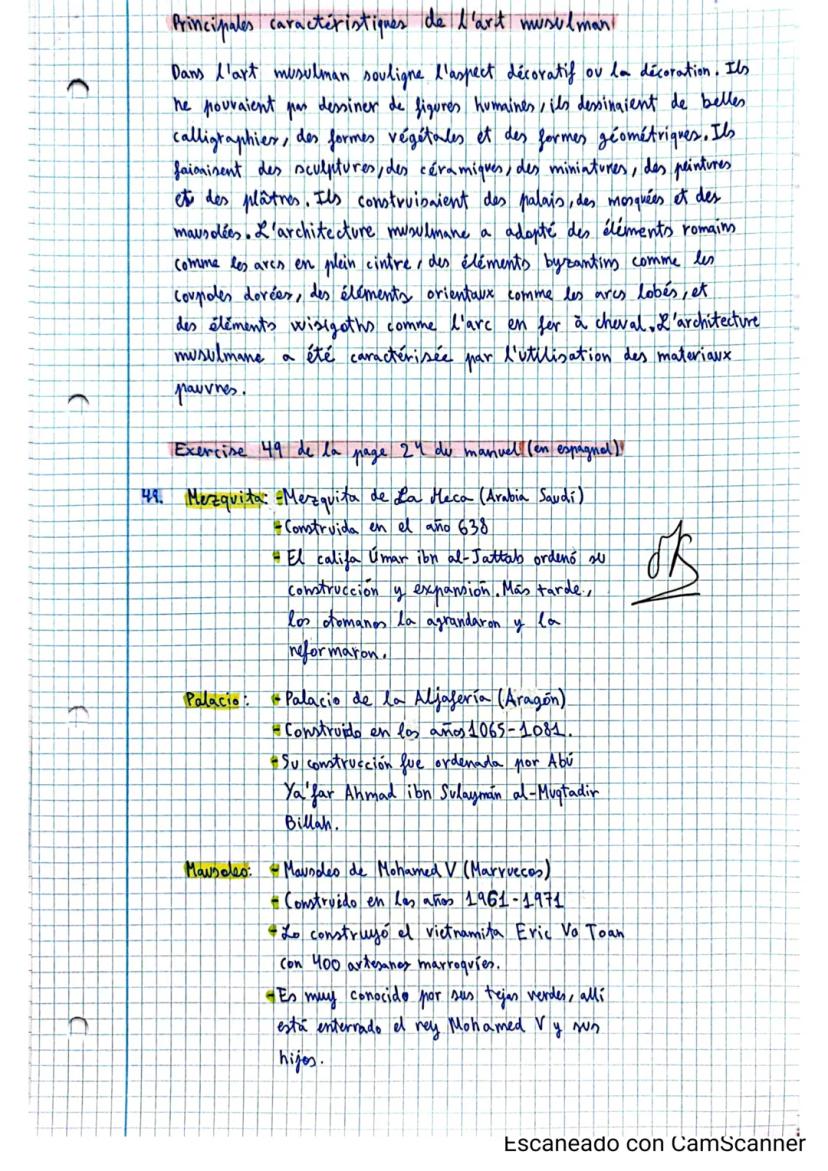 Principales caractéristiques de l'art musulman
Dans l'art musulman souligne l'aspect décoratif ou la décoration. Ils
ne pouvaient pas dessiner de figures humaines, ils dessinaient de belles
calligraphies, des formes végétales et des formes géométriques. Ils
faiaisent des sculptures, des céramiques, des miniatures, des peintures
et des plâtres. Ils construisaient des palais, des mosquées et des
mausolées. L'architecture musulmane a adopté des éléments romains
comme les arcs en plein cintre, des éléments byzantins comme les
coupoles dorées, des éléments orientaux comme les arcs lobés, et
des éléments wisigoths comme l'arc en fer à cheval. L'architecture
musulmane a été caractérisée par l'utilisation des materiaux
pauvres.
Exercise 49 de la page 24 du manuel (en espagnol)
49. Mezquita: -Mezquita de La Meca (Arabia Saudí)
-Construida en el año 638
-El califa Úmar ibn al-Jattab ordenó su
construcción y expansión. Más tarde,
los otomanos la agrandaron y la
reformaron.
Palacio: -Palacio de la Aljafería (Aragón)
-Construido en los años 1065-1081.
-Su construcción fue ordenada por Abú
Ya'far Ahmad ibn Sulaymán al-Muqtadir
Billah.
Mausoleo: -Mausoleo de Mohamed V (Marruecos)
-Construido en los años 1961-1971
-Lo construyó el vietnamita Eric Vo Toan
con 400 artesanos marroquíes.
-Es muy conocido por sus tejas verdes, allí
está enterrado el rey Mohamed V y sus
hijos.
Escaneado con CamScanner